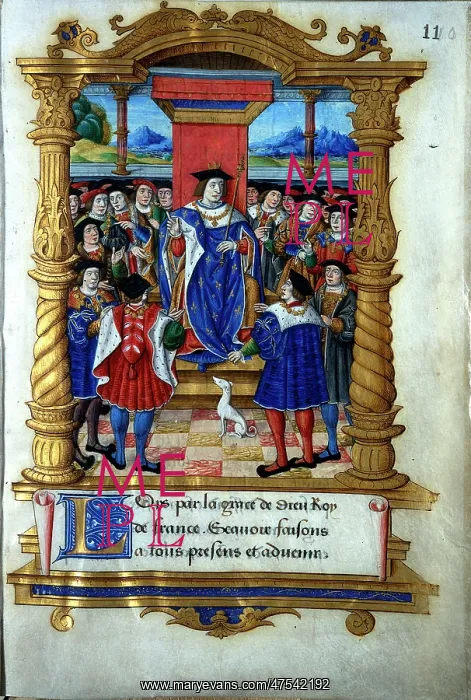 11
ME
PL
ME
PL
Loys par la grace de dieu Roy
de france. Scavoir faisons
a tous presens et advenir.
www.maryevans.com/47542192